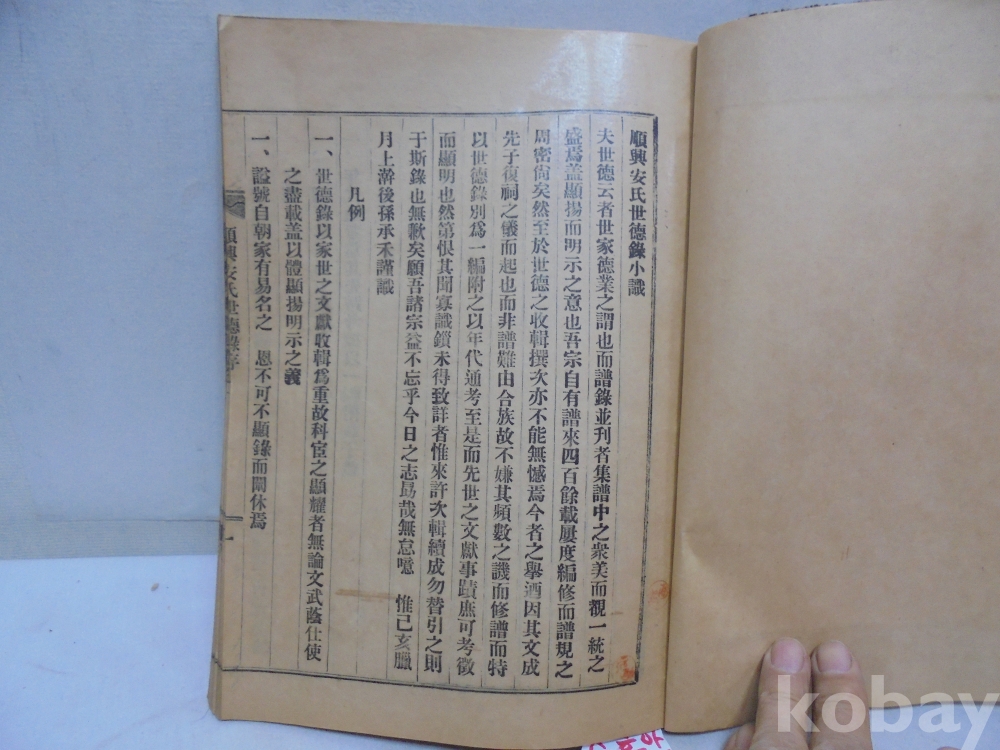 順興安氏世德錄小識
夫世德云者世家德業之謂也而譜錄並刊者集譜中之衆美而覩一統之
盛焉盖顯揚而明示之意也吾宗自有譜來四百餘載屢度編修而譜規之
周密尙矣然至於世德之收輯撰次亦不能無憾焉今者之擧酒因其文成
先子復祠之儀而起也而非譜難由合族故不嫌其頻數之譏而修譜而特
以世德錄別爲一編附之以年代通考至是而先世之文獻事蹟庶可考徵
而顯明也然第恨其聞寡識鎖未得致詳者惟來許次輯續成勿替引之則
于斯錄也無歉矣願吾諸宗益不忘乎今日之志勗哉無怠噫 惟己亥臘
月上澣後孫承禾謹識
凡例
一、世德錄以家世之文獻收輯爲重故科宦之顯耀者無論文武蔭仕使
之盡載盖以體顯揚明示之義
一、諡號自朝家有易名之 恩不可不顯錄而闡休焉
順興安氏世德錄序
一
kobay